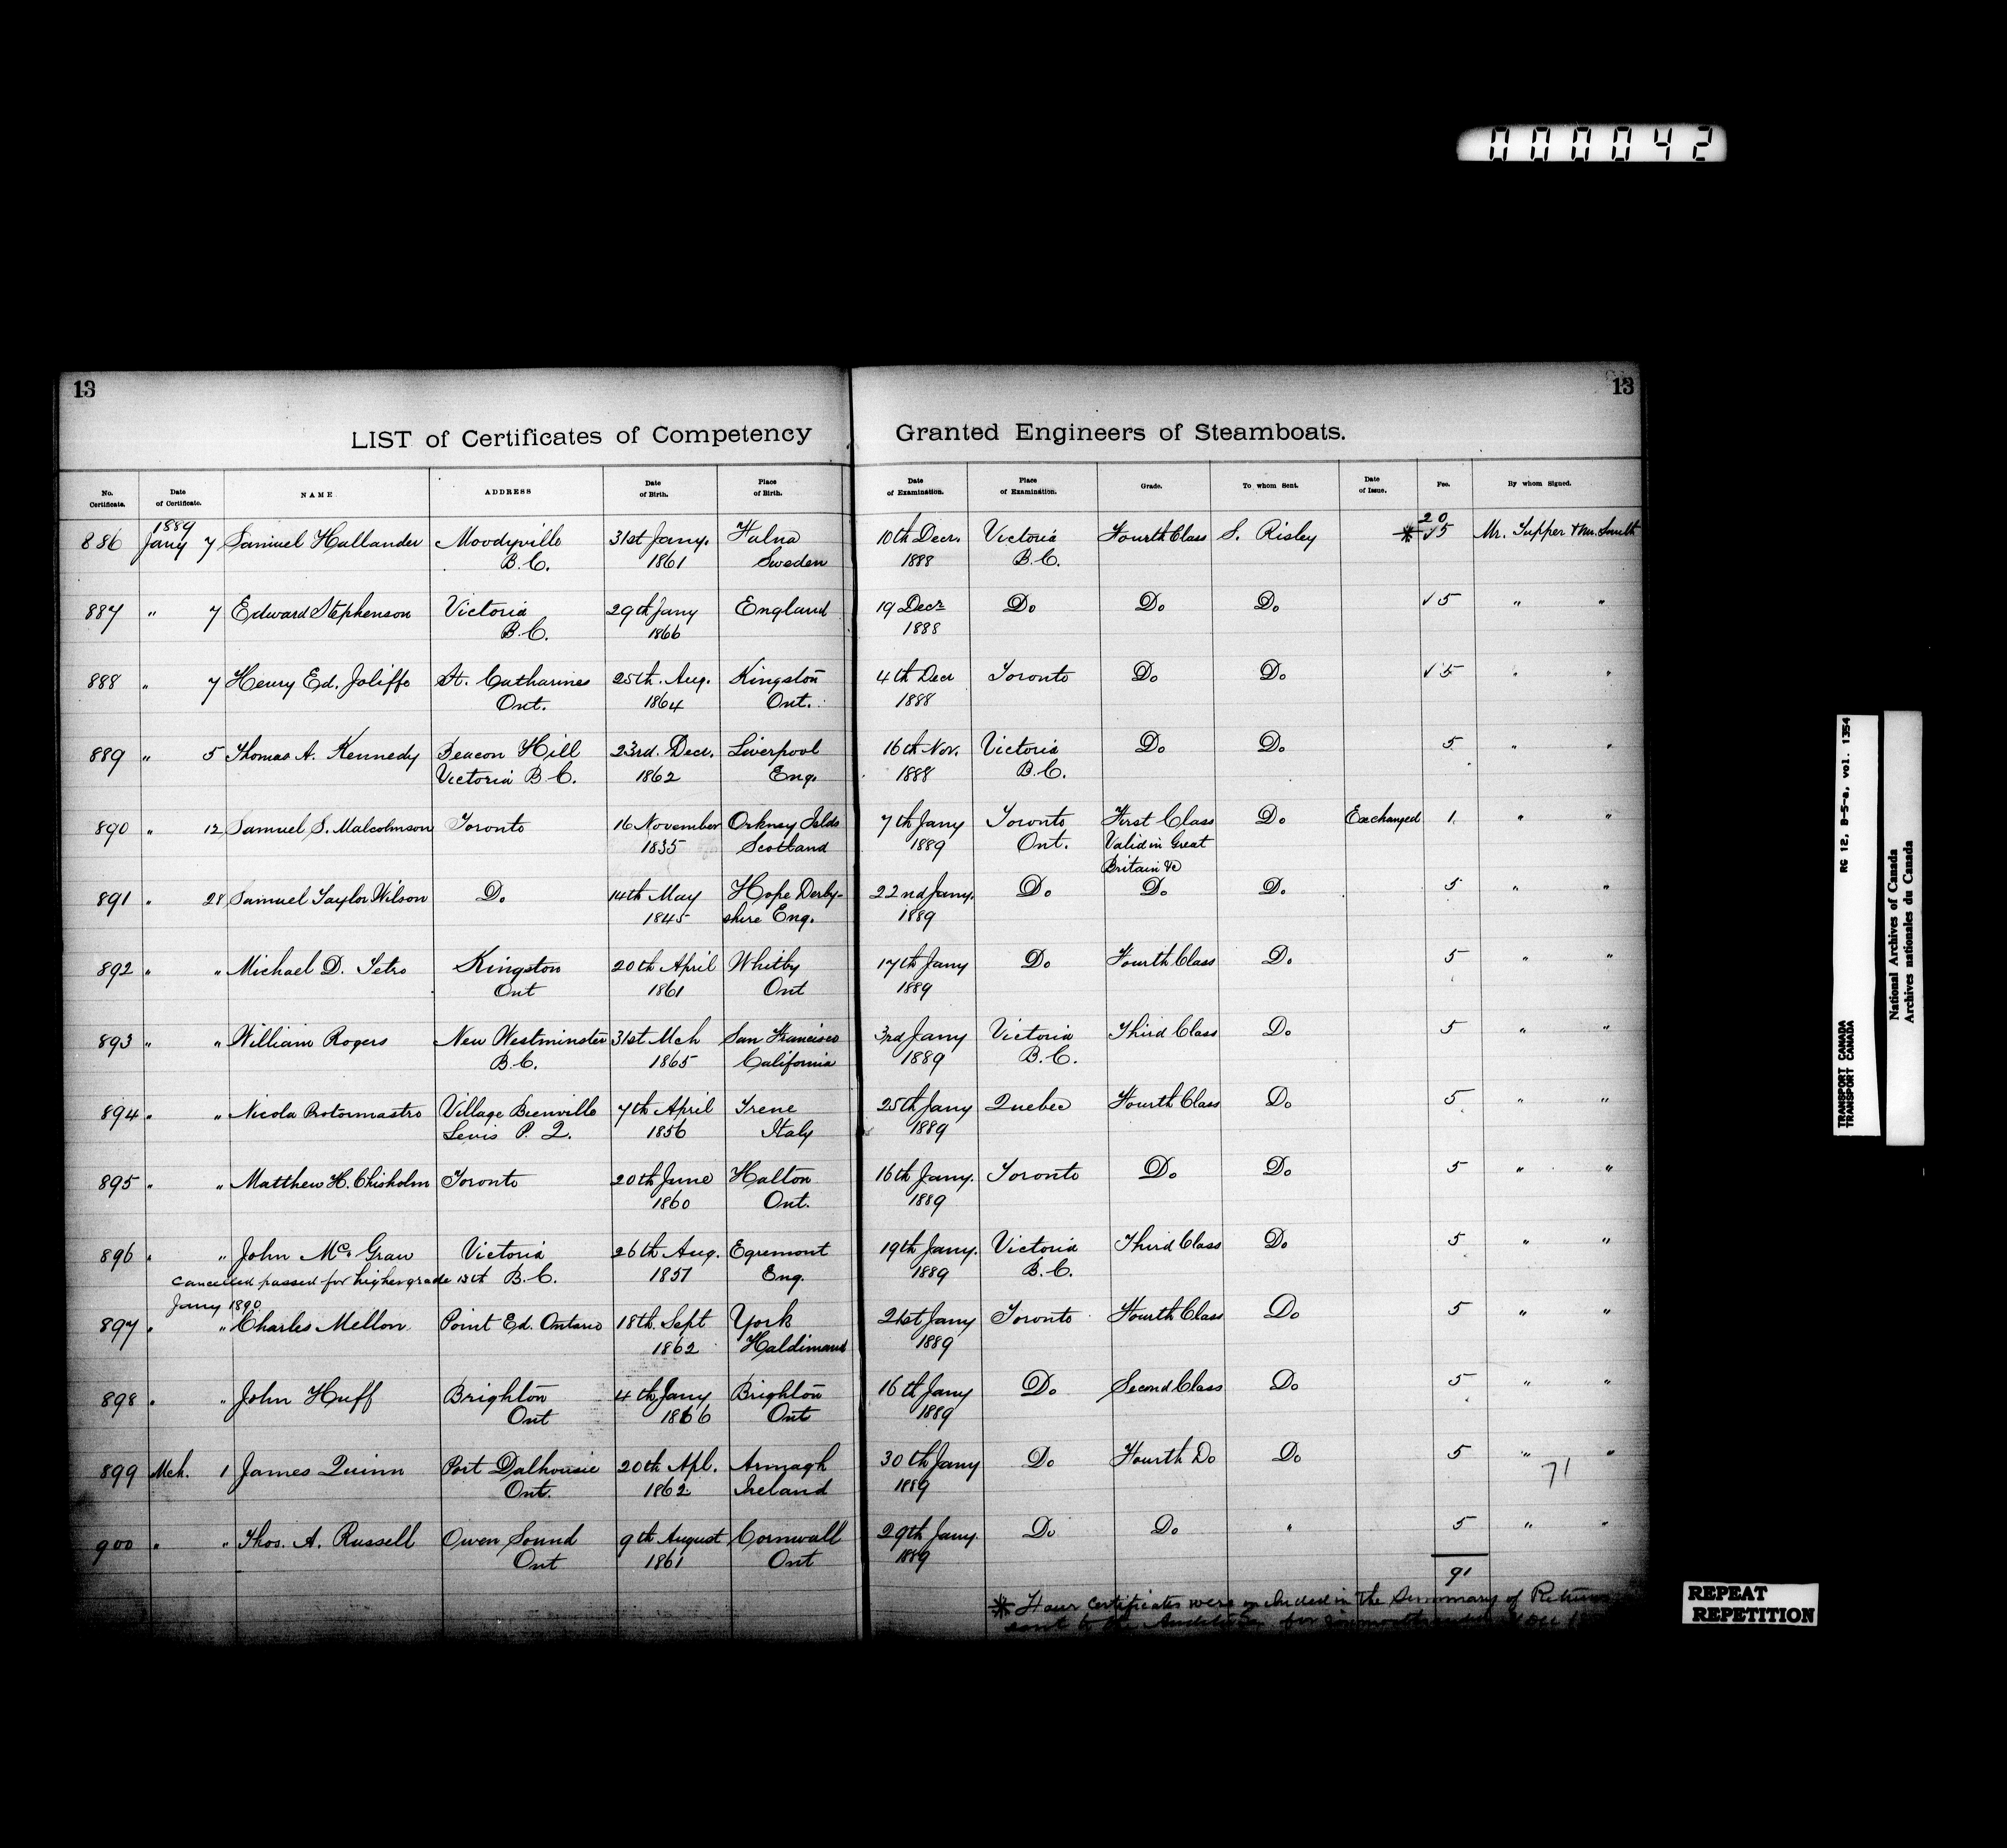 000042
13
13
LIST of Certificates of Competency Granted Engineers of Steamboats.
No. Certificate. Date of Certificate. NAME ADDRESS Date of Birth. Place of Birth. Date of Examination. Place of Examination. Grade. To whom Sent. Date of Issue. Fee. By whom Signed.
1889 20
886 Jany 7 Samuel Hallander Moodyville 31st Jany. Falna 10th Decr. Victoria Fourth Class S. Risley * √5 Mr. Tupper & Mr. Smith
B.C. 1861 Sweden 1888 B.C.
887 " 7 Edward Stephenson Victoria 29th Jany England 19 Decr Do Do Do √5 " "
B.C. 1866 1888
888 " 7 Henry Ed. Joliffe St. Catharines 25th. Aug. Kingston 4th Decr Toronto Do Do √5 " "
Ont. 1864 Ont. 1888
889 " 5 Thomas A. Kennedy Beacon Hill 23rd. Decr. Liverpool 16th Nov. Victoria Do Do 5 " "
Victoria B.C. 1862 Eng. 1888 B.C.
890 " 12 Samuel S. Malcolmson Toronto 16 November Orkney Islds 7th Jany Toronto First Class Do Exchanged 1 " "
1835 Scotland 1889 Ont. Valid in Great
Britain &c
891 " 28 Samuel Taylor Wilson Do 14th May Hope Derby- 22nd Jany. Do Do Do 5 " "
1845 shire Eng. 1889
892 " " Michael D. Tetro Kingston 20th April Whitby 17th Jany Do Fourth Class Do 5 " "
Ont 1861 Ont 1889
893 " " William Rogers New Westminster 31st Mch San Francisco 3rd Jany Victoria Third Class Do 5 " "
B.C. 1865 California 1889 B.C.
894 " " Nicola Protormastro Village Bienville 7th April Irene 25th Jany Quebec Fourth Class Do 5 " "
Levis P.Q. 1856 Italy 1889
895 " " Matthew H. Chisholm Toronto 20th June Halton 16th Jany. Toronto Do Do 5 " "
1860 Ont. 1889
896 " " John McGraw Victoria 26th Aug. Egremont 19th Jany. Victoria Third Class Do 5 " "
Cancelled passed for higher grade 13th B.C. 1857 Eng. 1889 B.C.
Jany 1890
897 " " Charles Mellon Point Ed. Ontario 18th. Sept York 21st Jany Toronto Fourth Class Do 5 " "
1862 Haldimand 1889
898 " " John Huff Brighton 4th Jany Brighton 16th Jany Do Second Class Do 5 " "
Ont 1866 Ont 1889
899 Mch. 1 James Quinn Port Dalhousie 20th Apl. Armagh 30th Jany Do Fourth Do Do 5 " "
Ont. 1862 Ireland 1889 71
900 " " Thos. A. Russell Owen Sound 9th August Cornwall 29th Jany. Do Do " 5 " "
Ont 1861 Ont 1889
91
* Four Certificates were included in the Summary of Returns
sent to the for
RG 12, B-5-a, vol. 1354
TRANSPORT CANADA
TRANSPORT CANADA
National Archives of Canada
Archives nationales du Canada
REPEAT
REPETITION